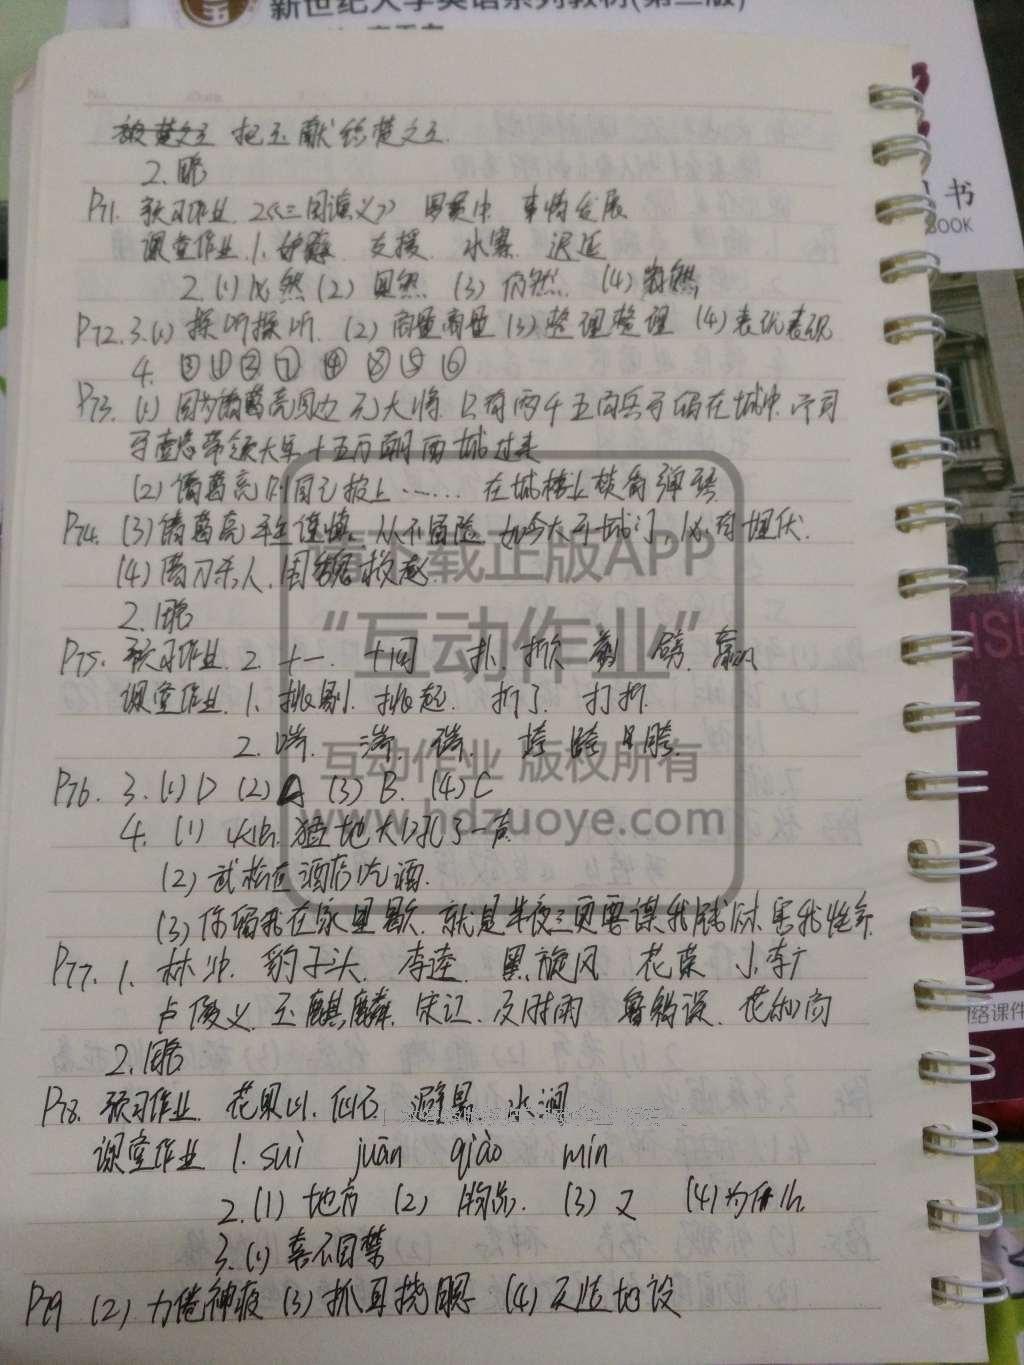 新世纪大学英语系列教材(第二版)
书
BOOK
被楚文王 把玉献给楚文王.
2.略
P71. 预习作业. 2《三国演义》 罗贯中 事情发展
课堂作业.1.妒忌 支援. 水寨. 迟延
2.(1)必然(2)果然.(3)仍然.(4)
P72.3.(1)探听探听.(2)商量商量(3)整理整理(4)表现表现
4. ⑤
P73.(1)因为诸葛亮身边无大将.只有两千五百兵马留在城中.而司
马懿带领大军十五万朝西城过来
(2)诸葛亮则自己披上……在城楼上焚香弹琴
P74.(3)诸葛亮平生谨慎.从不冒险.如今大开城门.必有埋伏.
(4)借刀杀人.围魏救赵
2.略
P75. 预习作业.2.十一. 十回 扑. 掀 剪
课堂作业.1.挑剔.挑起. 折了. 打折.
2.喘. 湍. 瑞. 垮 跨 胯.
P76. 3.(1)D (2)A (3)B. (4)C
4.(1)猛地大吼了一声
(2)武松在酒店吃酒.
(3)你留我在家里歇.就是半夜三更要谋我钱财.害我性命.
P77. 1. 林冲. 豹子头. 李逵. 黑旋风 花荣 小李广
卢俊义.玉麒麟.宋江.及时雨 鲁智深.花和尚
2.略
P78. 预习作业. 花果山.仙石 避暑 水涧
课堂作业 1.suì juān qiào mín
2.(1)地方 (2)物品. (3)又 (4)为什么
3.(1)喜不自禁
P79 (2)力倦神疲(3)抓耳挠腮 (4)天造地设
请下载正版APP
“互动作业”
互动作业 版权所有
www.hdzuoye.com
ISH
络课件